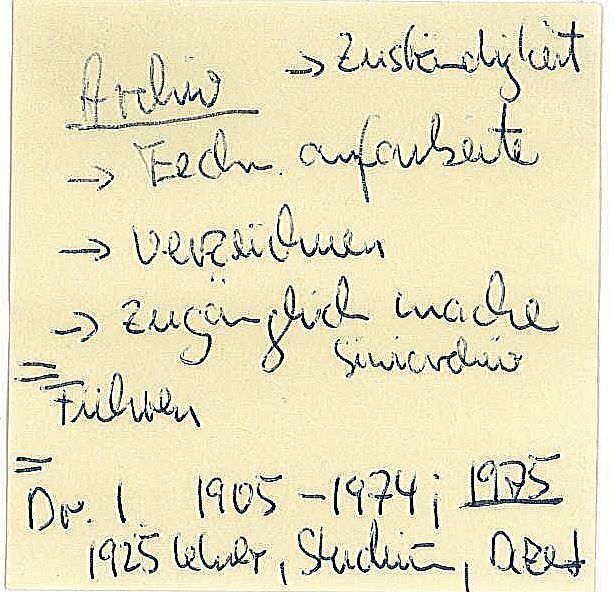 Archiv → Zuständigkeit
→ Techn. aufarbeite
→ verzeichnen
→ zugänglich mache
Führen
Dr. 1 1905 – 1974; 1975
1925 Lehrer, Studium,